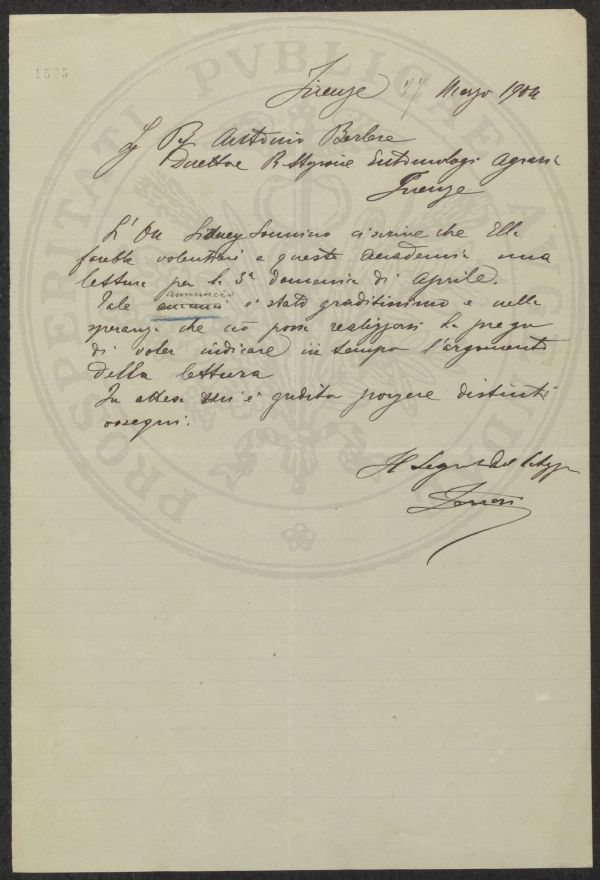 1505
PROSPERITATI PVBLICAE AVGENDAE
Firenze 27 Marzo 1904
Pf Antonio Berlese
Direttore R Stazione Entomologi Agraria
Firenze
L'On Sidney Sonnino ci scrive che Ella
farebbe volentieri a questa Accademia una
lettura per la 3a domenica di Aprile.
annuncio
Tale è stato graditissimo e nella
speranza che ciò possa realizzarsi la prego
di voler indicare in tempo l'argomento
della lettura
In attesa mi è gradito porgere distinti
ossequi.
Il Segret